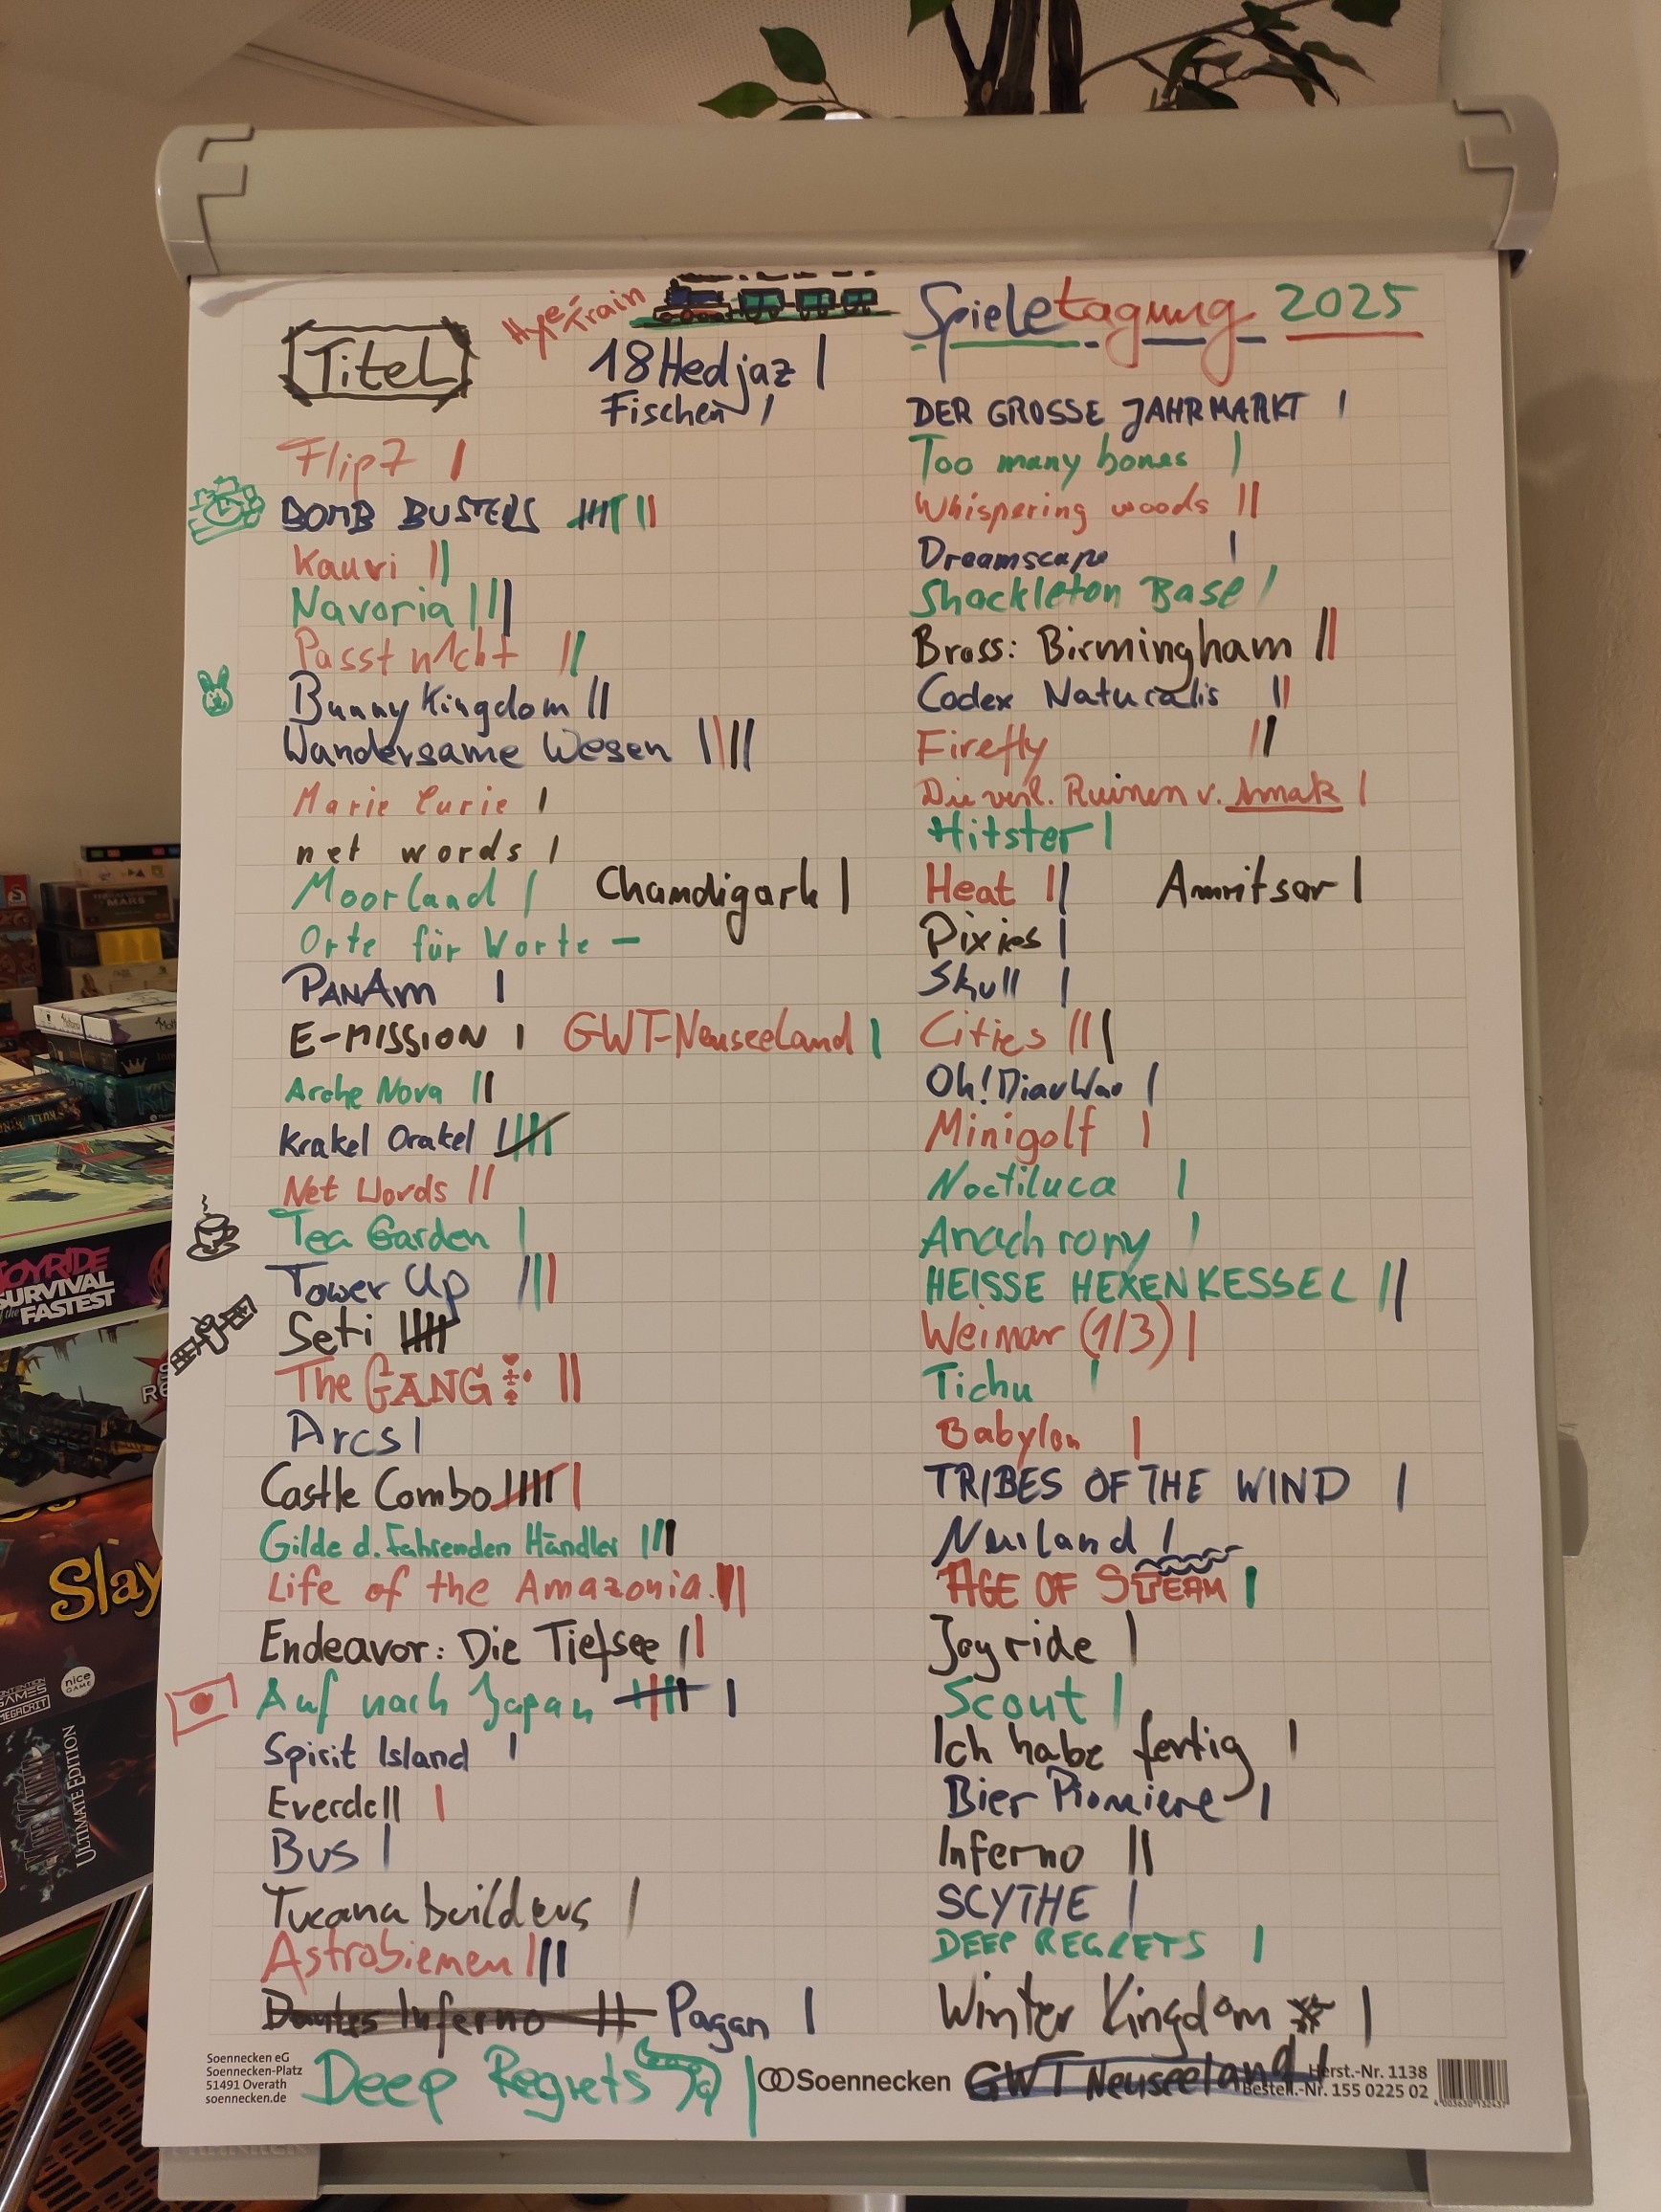 Hype Train
Spieletagung 2025
Titel
18Hedjaz |
Fischen |
Flip7 |
BOMB BUSTERS |||| |||
Kauri ||
Navoria |||
Passt n1cht ||
Bunny Kingdom ||
Wandersame Wesen ||||
Marie Curie |
net words |
Moorland | Chandigarh |
Orte für Worte –
PANAM |
E-MISSION | GWT-Neuseeland |
Arche Nova ||
Krakel Orakel ||||
Net Words ||
Tea Garden |
Tower Up |||
Seti ||||
The GANG ||
Arcs |
Castle Combo |||| |
Gilde d. Fahrenden Händler |||
Life of the Amazonia |||
Endeavor: Die Tiefsee |||
Auf nach Japan |||| |
Spirit Island |
Everdell |
Bus |
Tucana builders |
Astrobienen |||
Dantes Inferno || Pagan |
Deep Regrets |
DER GROSSE JAHRMARKT |
Too many bones |
Whispering woods ||
Dreamscape |
Shackleton Base |
Brass: Birmingham ||
Codex Naturalis ||
Firefly ||
Die verl. Ruinen v. Arnak |
Hitster |
Heat || Amritsar |
Pixies |
Skull |
Cities |||
Minigolf |
Noctiluca |
Anachrony |
HEISSE HEXENKESSEL ||
Weimar (1/3) |
Tichu |
Babylon |
TRIBES OF THE WIND |
Neuland |
AGE OF STEAM |
Joyride |
Scout |
Ich habe fertig |
Bier Pioniere |
Inferno ||
SCYTHE |
DEEP REGRETS |
Winter Kingdom |
GWT Neuseeland |
Soennecken eG
Soennecken-Platz
51491 Overath
soennecken.de
Soennecken
Herst.-Nr. 1138
Bestell.-Nr. 155 0225 02
4 003630 132437
JOYRIDE
SURVIVAL
of the FASTEST
Slay
nice
GAME
GAMES
MEGACRIT
ULTIMATE EDITION
MARS